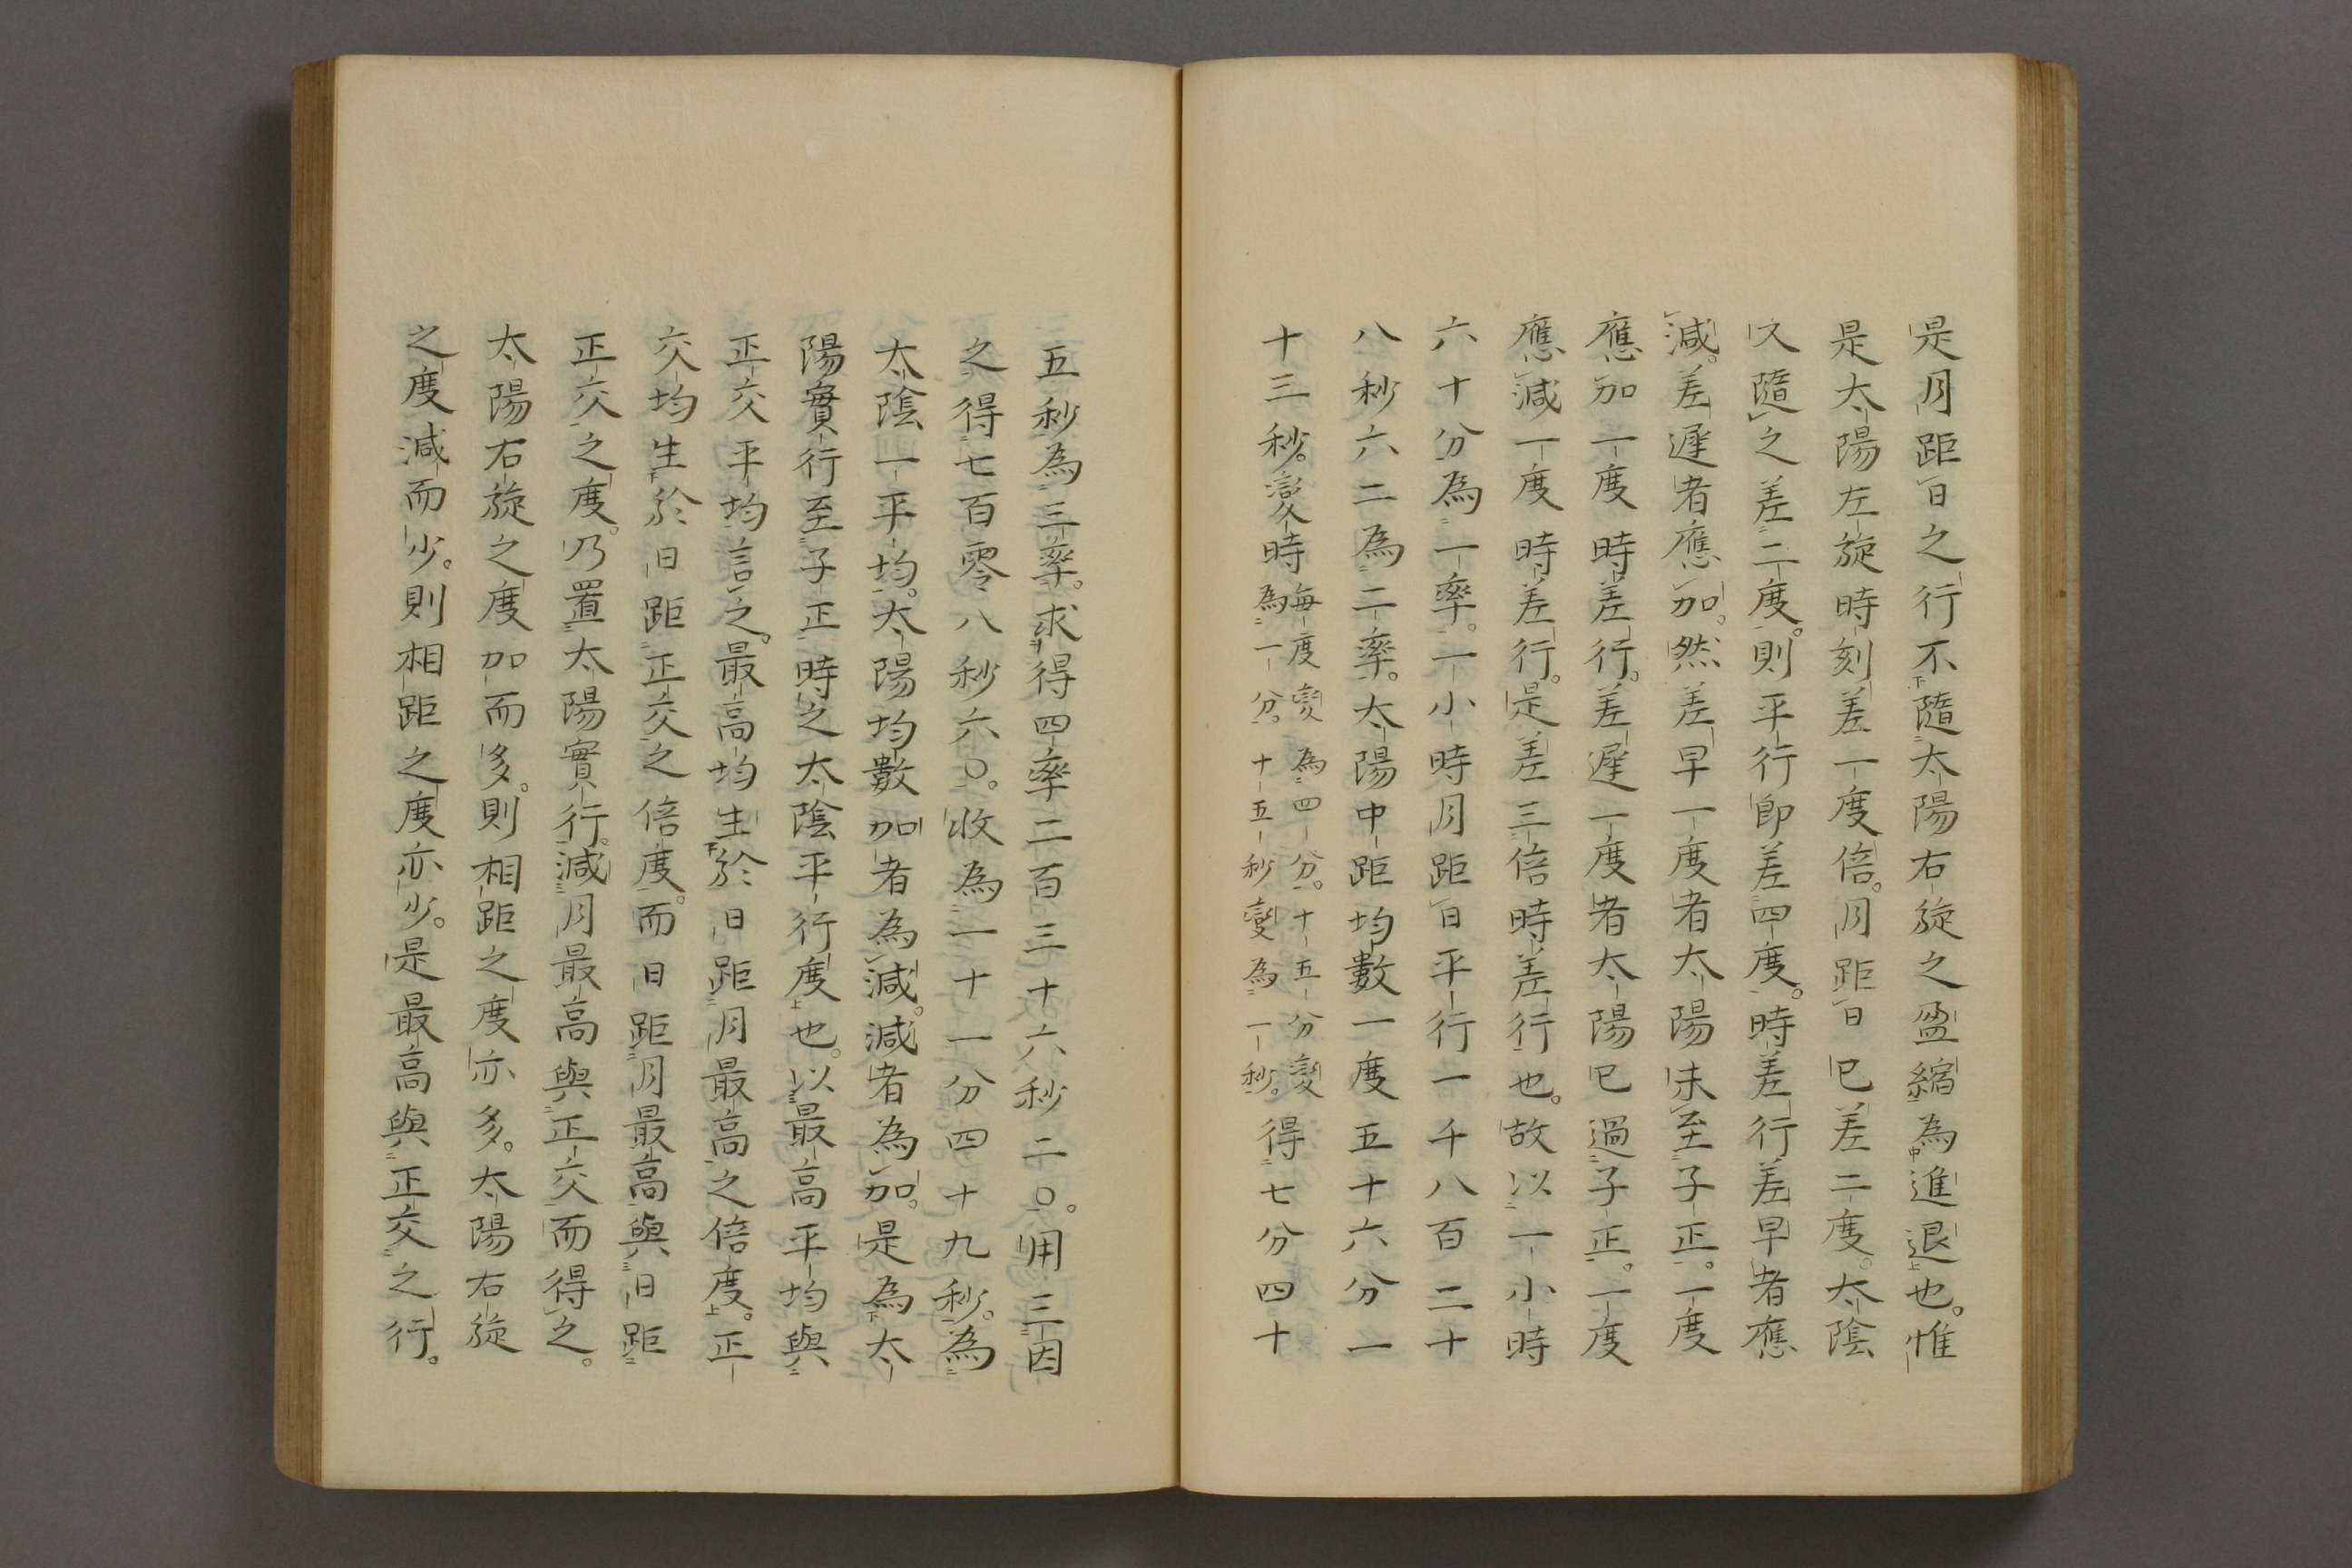 是月距日之行不隨太陽右旋之盈縮為進退也。惟
是太陽左旋時刻差一度倍。月距日已差二度。太陰
又隨之差二度。則平行即差四度。時差行差早者應
減。差遲者應加。然差早一度者太陽未至子正。一度
應加一度時差行。差遲一度者太陽已過子正。一度
應減一度時差行。是差三倍時差行也。故以一小時
六十分為一率。一小時月距日平行一千八百二十
八秒六二為二率。太陽中距均數一度五十六分一
十三秒。變時每度變為四分。十五分變為一分。十五秒變為一秒。得七分四十
五秒為三率。求得四率二百三十六秒二〇。用三因
之得七百零八秒六〇。收為一十一分四十九秒。為
太陰一平均。太陽均數加者為減。減者為加。是為太
陽實行至子正時之太陰平行度也。以最高平均與
正交平均言之。最高均生於日距月最高之倍度。正
交均生於日距正交之倍度。而日距月最高與日距
正交之度。乃置太陽實行。減月最高與正交而得之。
太陽右旋之度加而多。則相距之度亦多。太陽右旋
之度減而少。則相距之度亦少。是最高與正交之行。